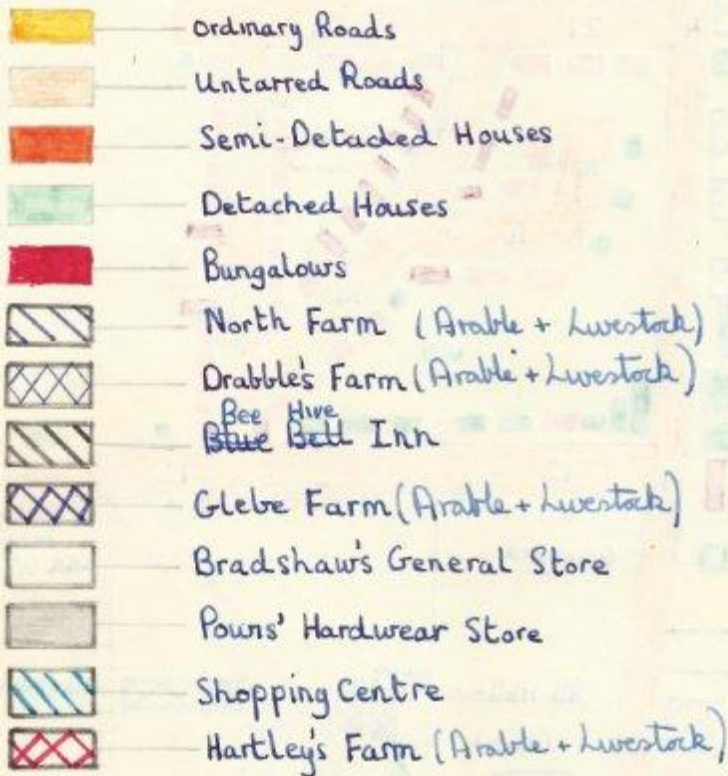 Ordinary Roads
Untarred Roads
Semi-Detached Houses
Detached Houses
Bungalows
North Farm (Arable + Livestock)
Drabble's Farm (Arable + Livestock)
Bee Hive
Blue Bell Inn
Glebe Farm (Arable + Livestock)
Bradshaw's General Store
Hardwear Store
Shopping Centre
Hartley's Farm (Arable + Livestock)